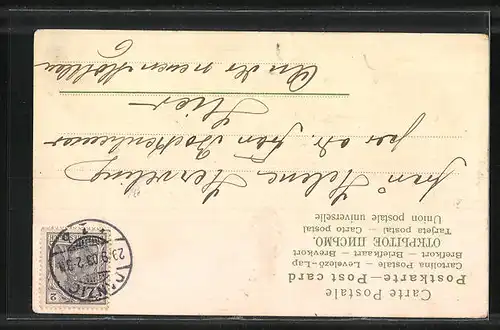 Carte Postale
Postkarte — Post card
Cartolina Postale — Levelező-Lap
Brefkort — Briefkaart — Brevkort
ОТКРЫТОЕ ПИСЬМО.
Tarjeta postal — Carto postal
Union postale universelle
Frau Helene Herveling
per adr. Frau
Hier
An der neuen Mottlau 6
DANZIG
2